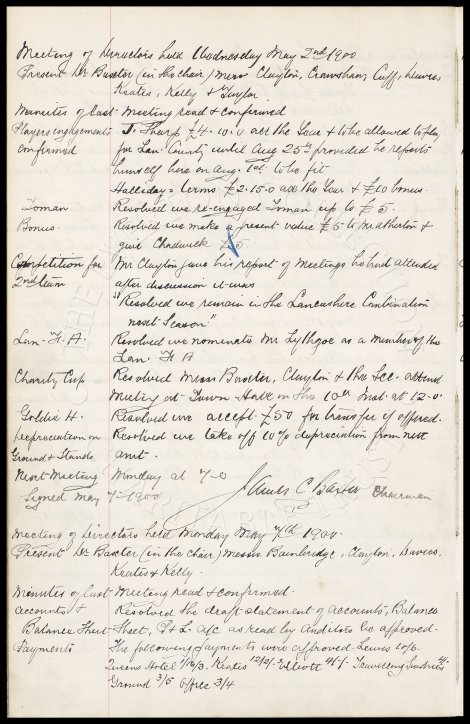 Meeting of Directors held Wednesday May 2nd 1900
Present Dr Baxter (in the chair) Messrs Clayton, Crawshaw, Cuff, Davies
Keates, Kelly & Taylor
Minutes of last Meeting read & confirmed
Players engagements J. Sharp £4.10.0 all the Year & to be allowed to play
confirmed for Lan: County until Aug 25th provided he reports
himself here on Aug. 1st to be fit
Halliday's terms £2.15.0 all the Year & £10 bonus.
Toman Resolved we re-engaged Toman up to £5.
Bonus. Resolved we make a present value £5 to McAtherton &
give Chadwick £5
Competition for Mr Clayton gave his report of Meetings he had attended
2nd team after discussion it was
"Resolved we remain in the Lancashire Combination
next Season"
Lan. F. A. Resolved we nominate Mr Lythgoe as a member of the
Lan. F A
Charity Cup Resolved Messrs Baxter, Clayton & the Sec. attend
Meeting at Town Hall on the 10th Inst. at 12.0.
Goldie H. Resolved we accept £50 for transfer if offered.
Depreciation on Resolved we take off 10% depreciation from nett
Ground & Stands amt.
Next Meeting Monday at 7-0
Signed May 7th 1900 James C Baxter Chairman
Meeting of Directors held Monday May 7th 1900.
Present Dr Baxter (in the chair) Messrs Bainbridge, Clayton, Davies.
Keates & Kelly.
Minutes of last Meeting read & confirmed.
Accounts & Resolved the draft statement of accounts, Balance
Balance Sheet Sheet, P & L. a/c as read by Auditors be approved.
Payments The following payments were approved. Lewis 10/6.
Queens Hotel Keates 12/2/. Elliott Travelling
Ground 3/5 Office 3/4